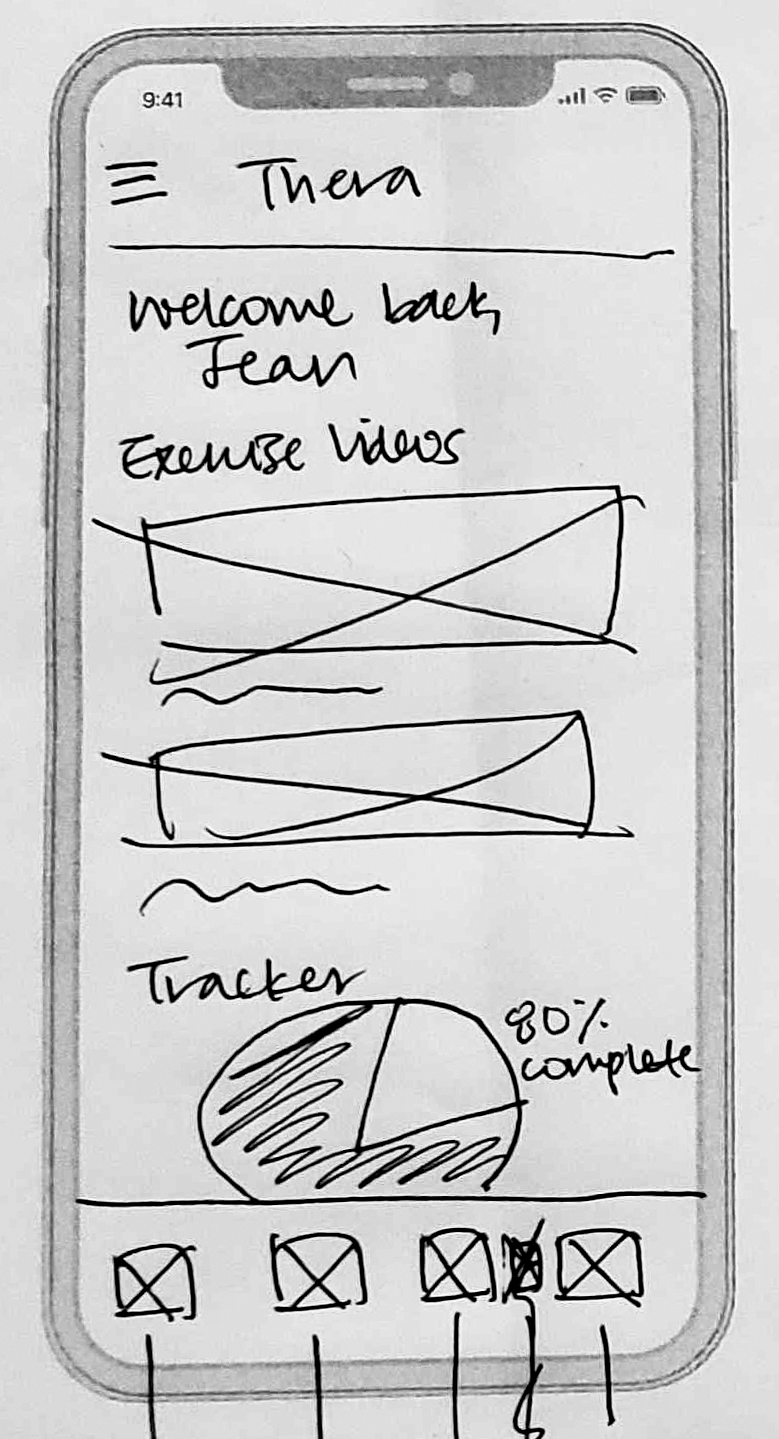 9:41
Thera
Welcome back,
Jean
Exercise Videos
Tracker
80%
complete